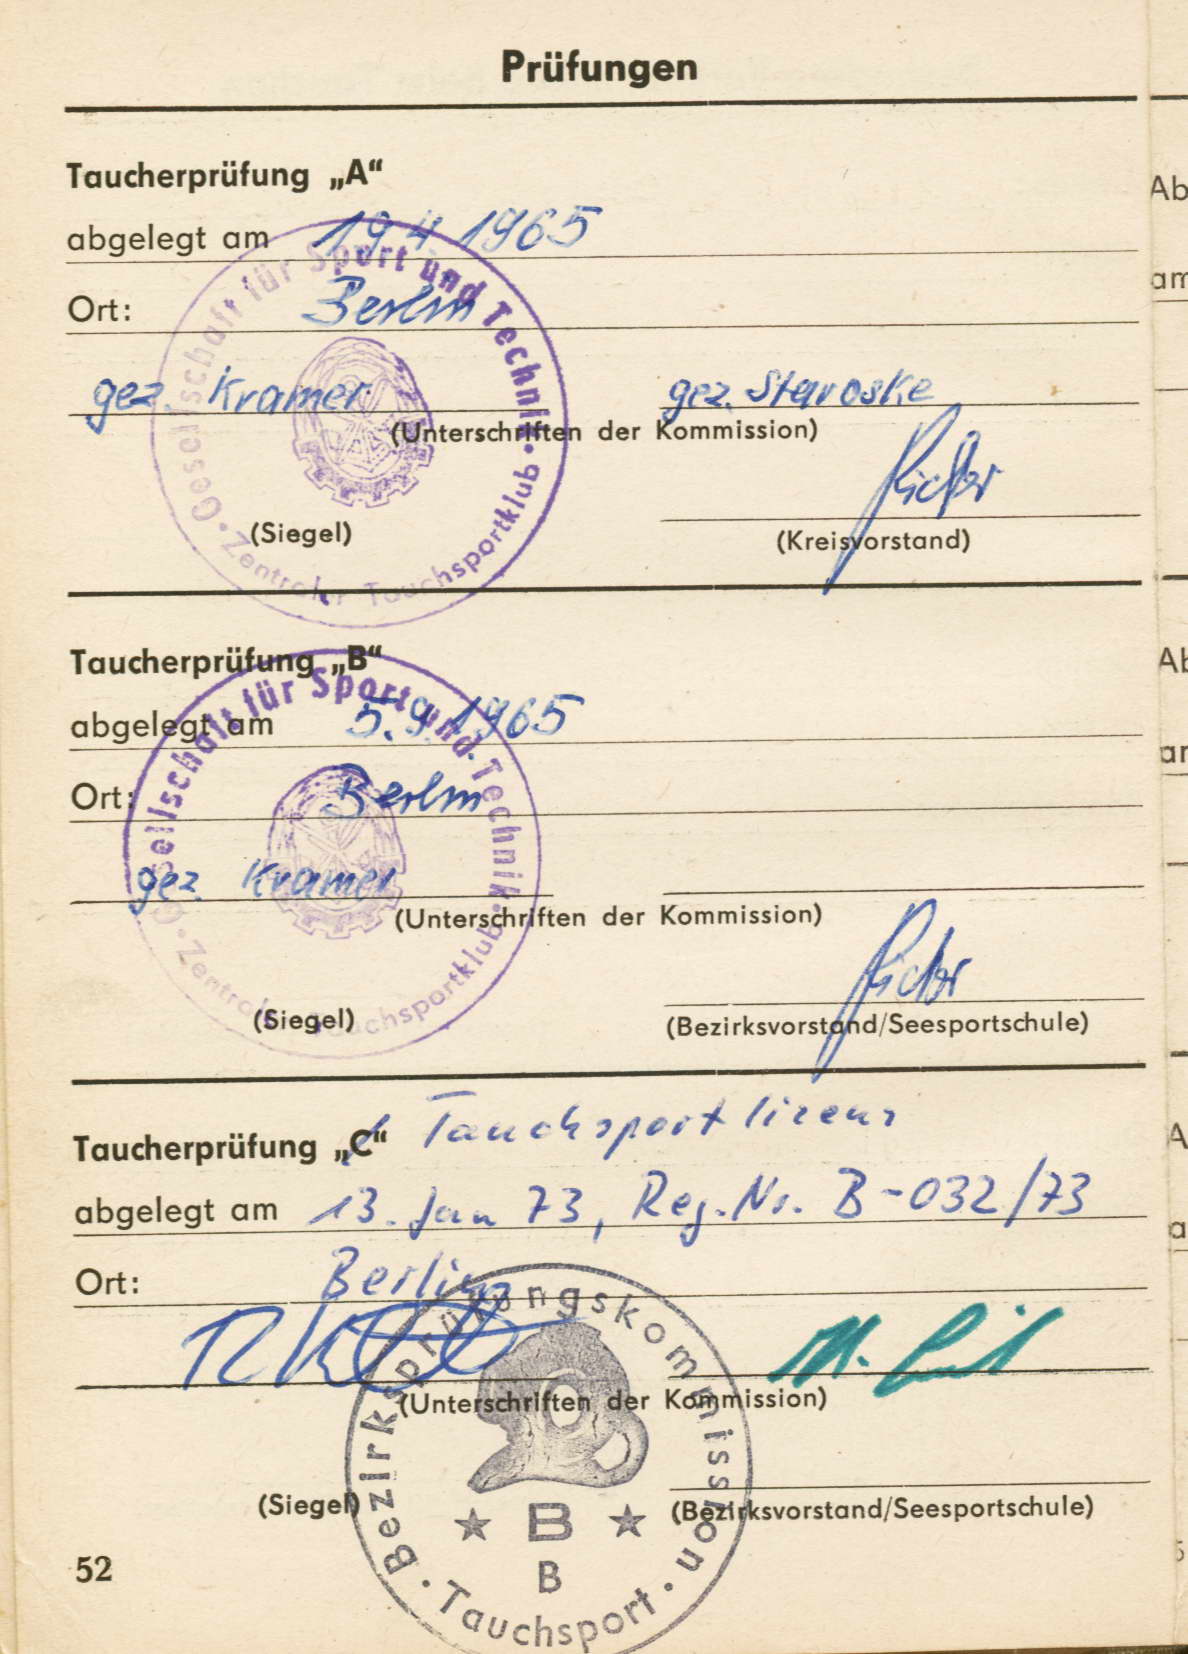 Prüfungen
Taucherprüfung „A“
abgelegt am 19.4.1965
Ort: Berlin
gez. Kramer gez. Staroske
(Unterschriften der Kommission)
(Siegel)
(Kreisvorstand)
Gesellschaft für Sport und Technik · Zentraler Tauchsportklub ·
Taucherprüfung „B“
abgelegt am 5.9.1965
Ort: Berlin
gez. Kramer
(Unterschriften der Kommission)
(Siegel)
(Bezirksvorstand/Seesportschule)
Gesellschaft für Sport und Technik · Zentraler Tauchsportklub ·
Taucherprüfung „C“ Tauchsportlizenz
abgelegt am 13. Jan 73, Reg. Nr. B-032/73
Ort: Berlin
(Unterschriften der Kommission)
(Siegel)
(Bezirksvorstand/Seesportschule)
Bezirksprüfungskommission · Tauchsport ·
★ B ★
B
52
Ab
am
Ab